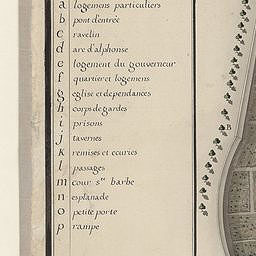 a logemens particuliers
b pont d'entrée
c ravelin
d arc d'alphonse
e logement du gouverneur
f quartier et logemens
g eglise et dependances
h corps de gardes
i prisons
j tavernes
k remises et ecuries
l passages
m cour s.te barbe
n esplanade
o petite porte
p rampe
B